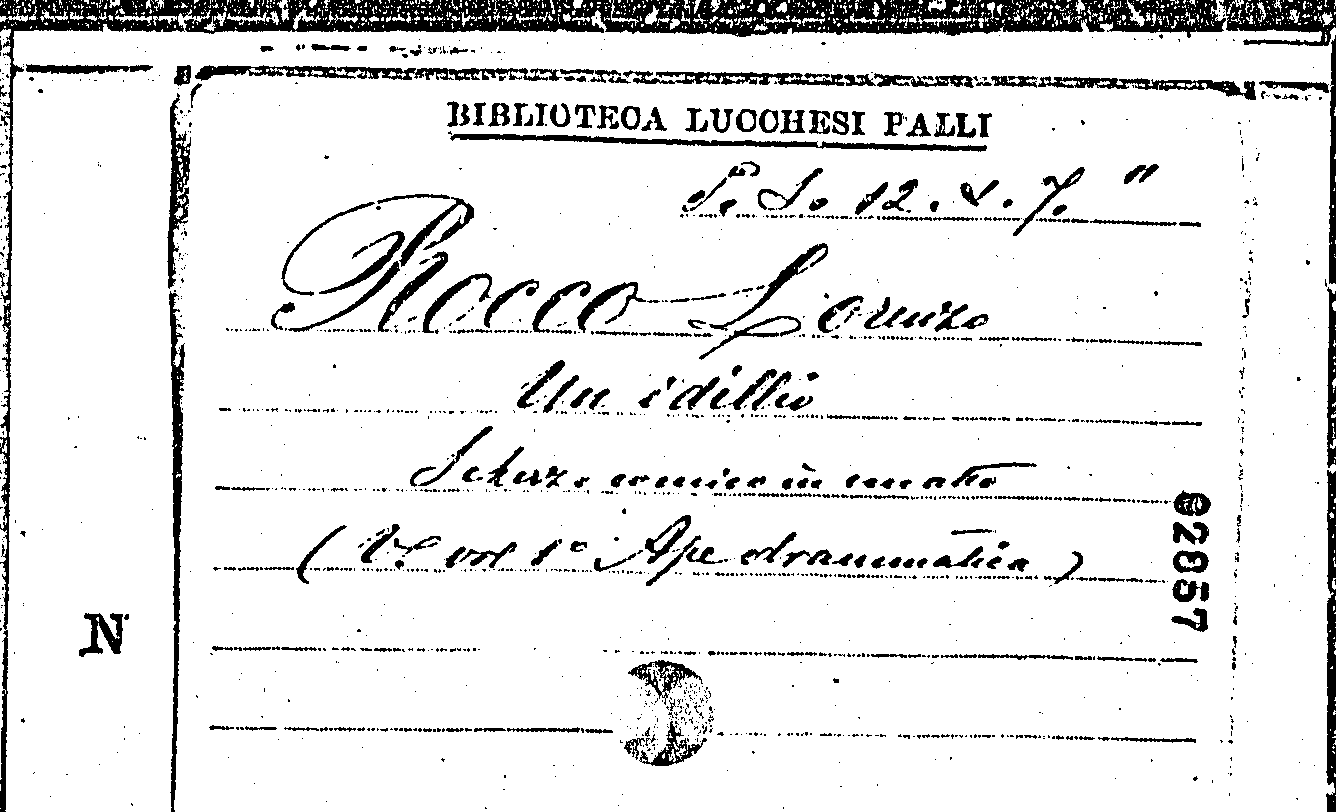 BIBLIOTECA LUCCHESI PALLI
Rocco Lorenzo
Un idillio
Scherzo comico in un atto
(V. vol 1° Ape drammatica)
82857
N